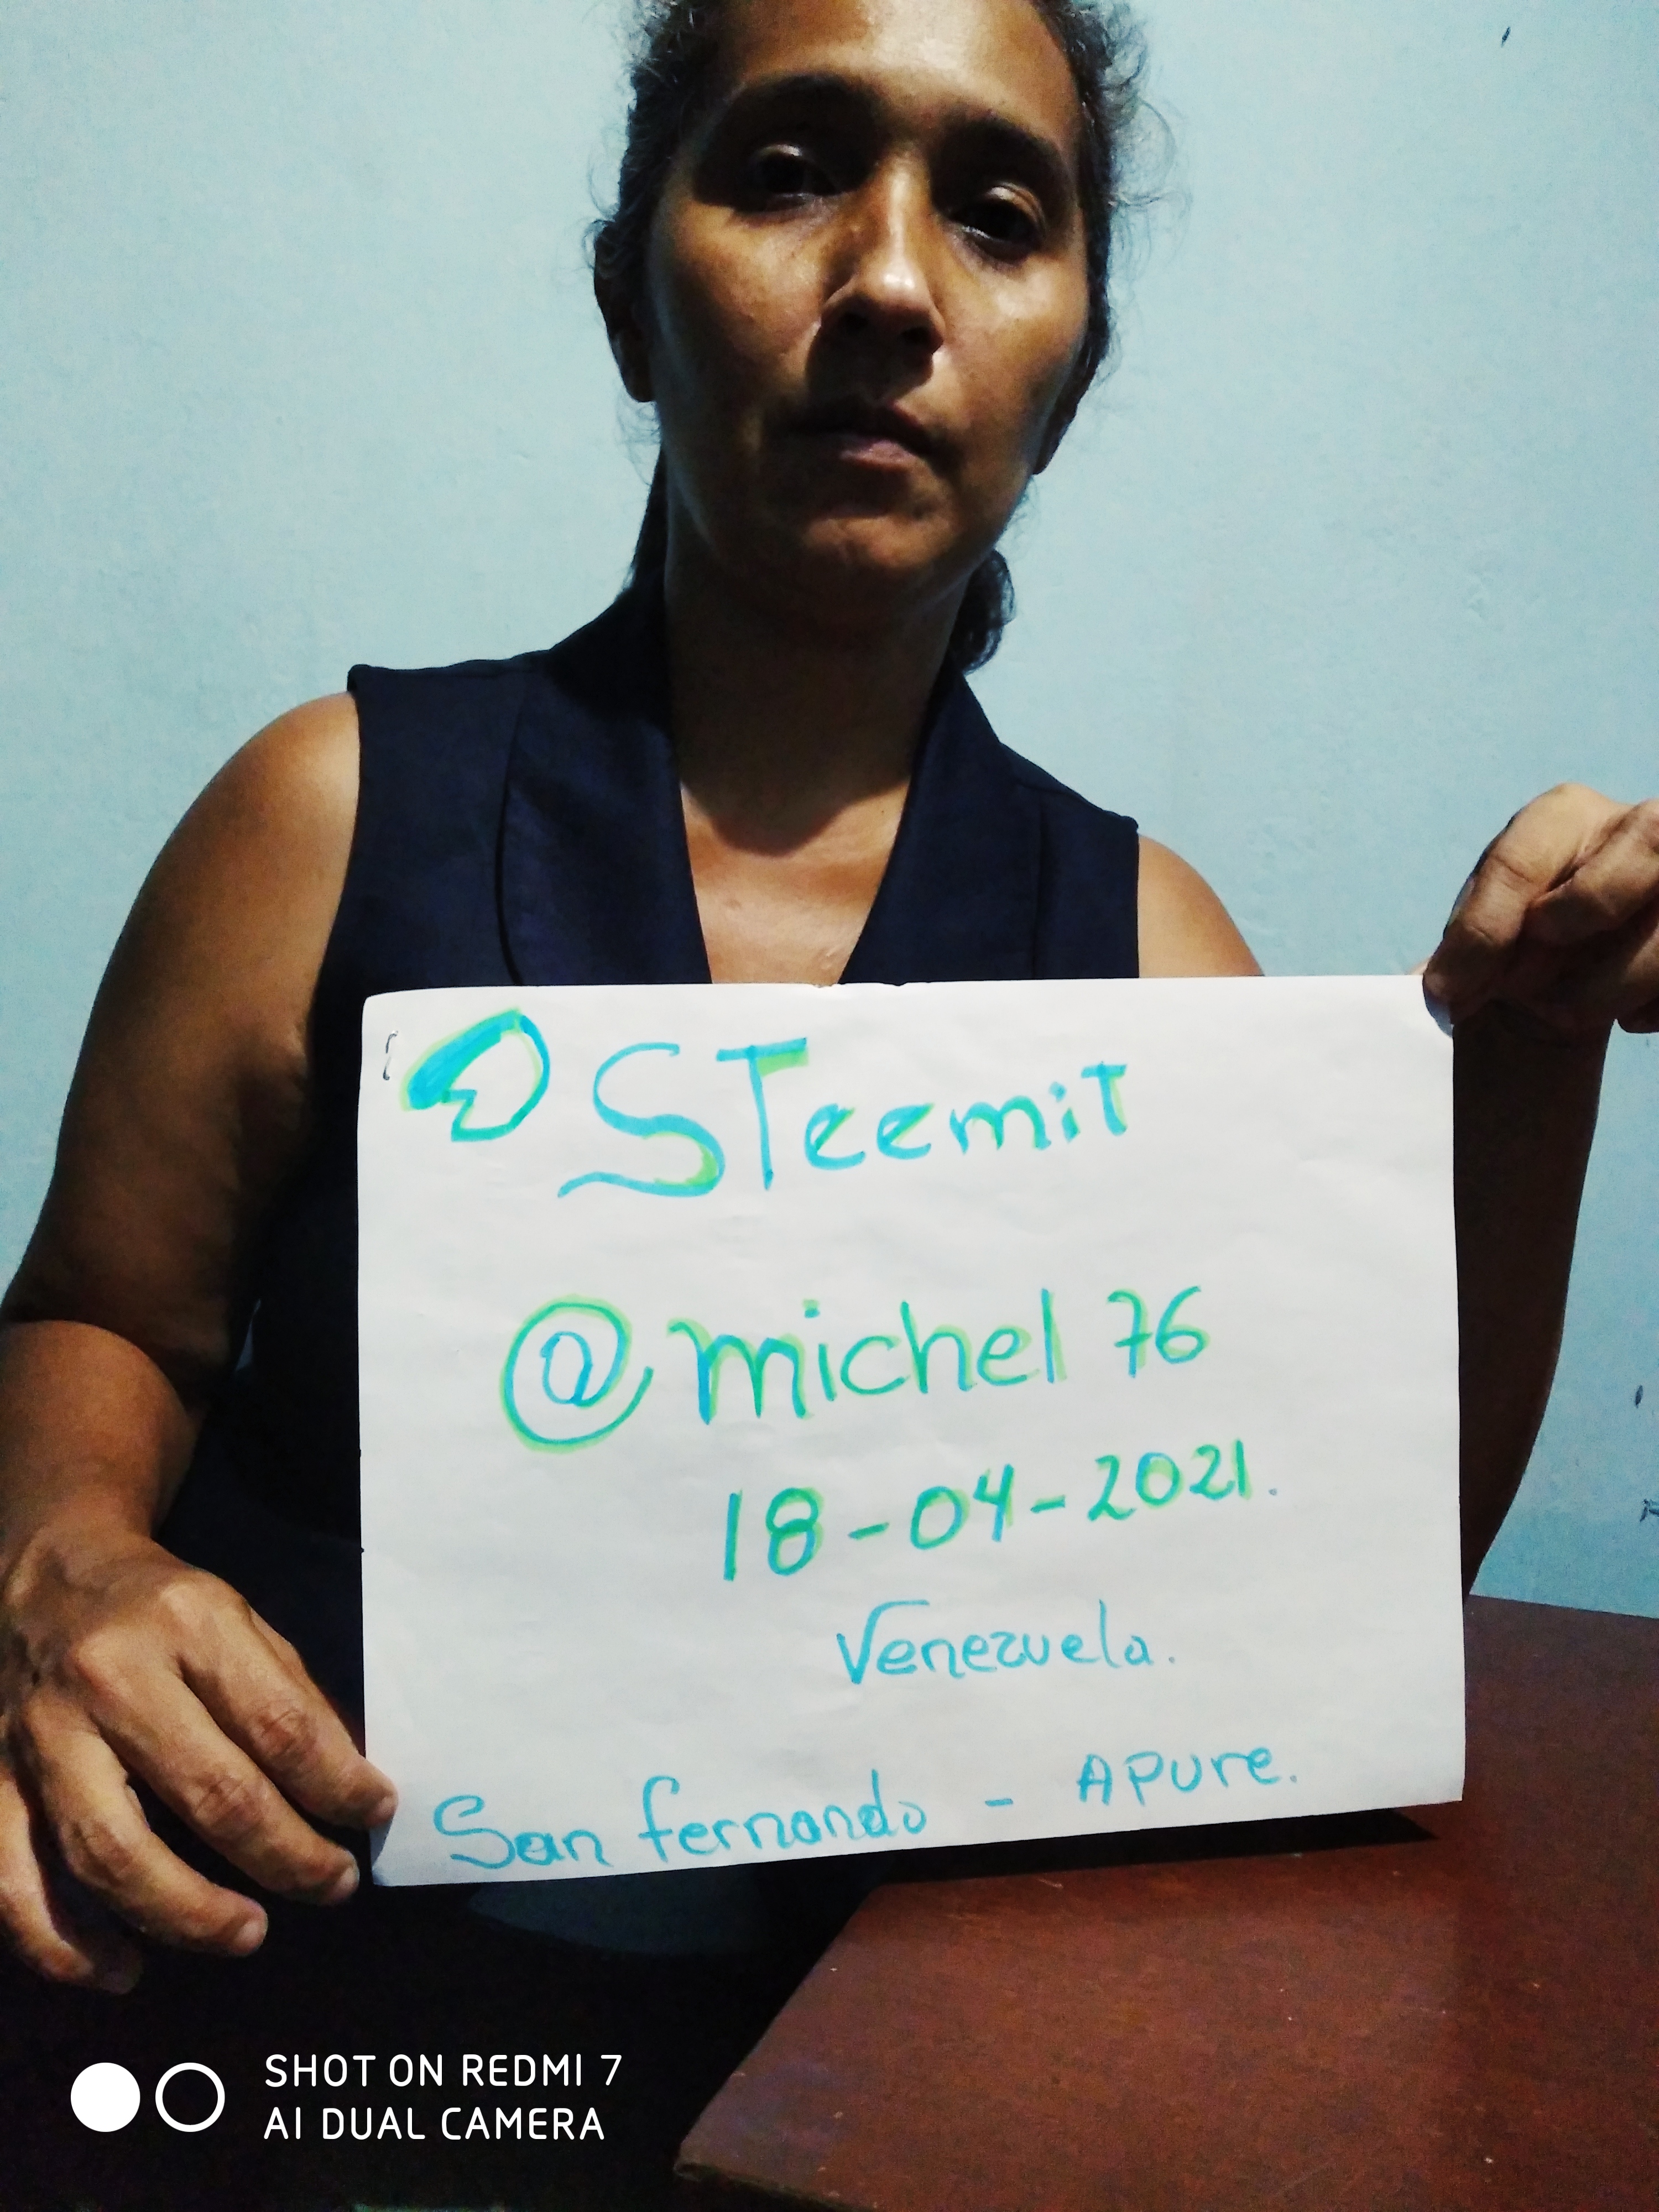 STeemiT
@michel 76
18-04-2021.
Venezuela.
San fernando - APure.
SHOT ON REDMI 7
AI DUAL CAMERA